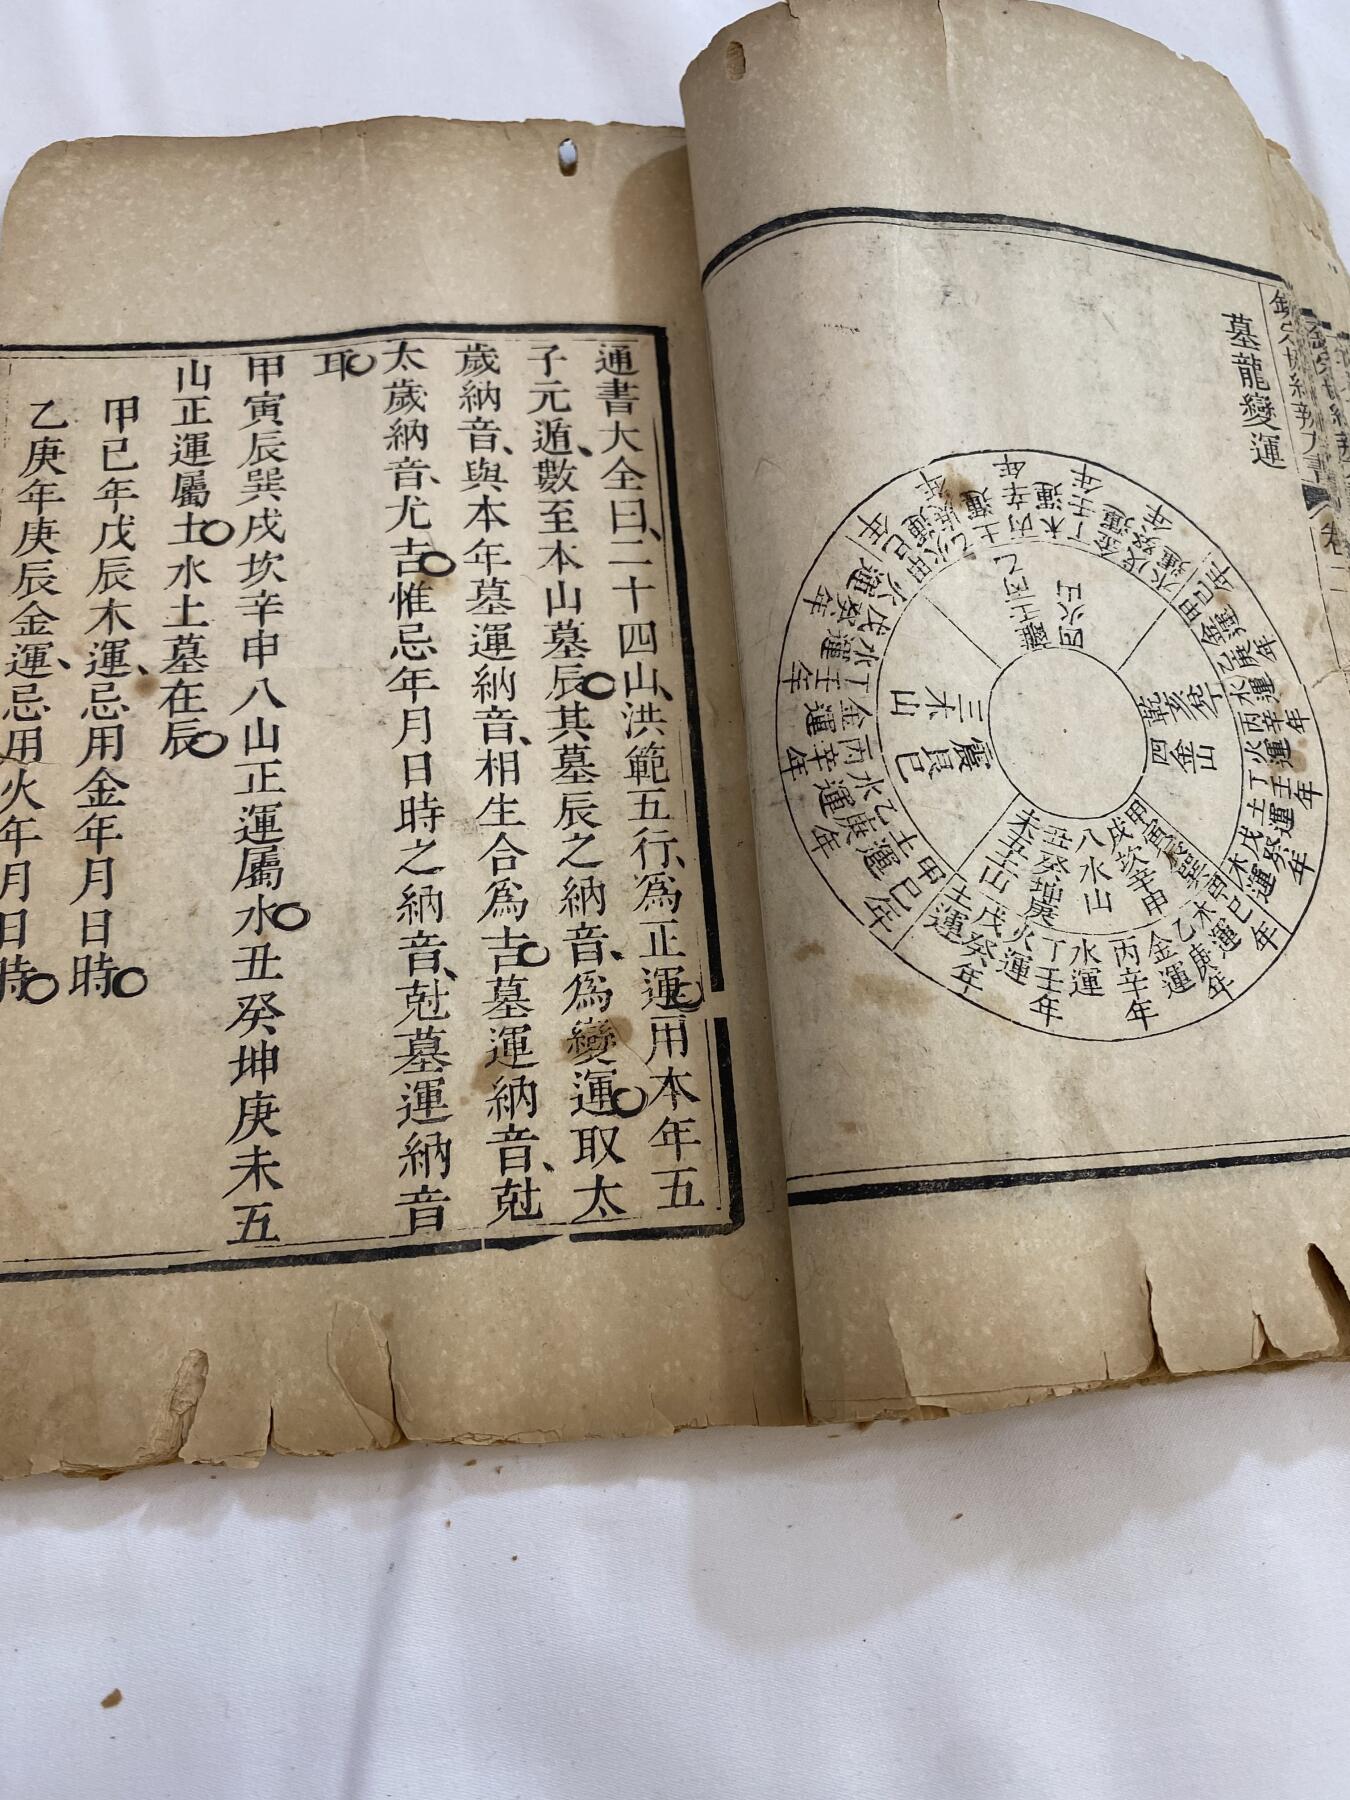 欽定協紀辨方書
卷二
墓龍變運
離壬丙乙
四火山
乾亥兌丁
四金山
甲寅辰巽
戌坎辛申
八水山
丑癸坤庚
未五土山
震艮巳
三木山
甲己年
乙庚年
丙辛年
丁壬年
戊癸年
土運
火運
水運
金運
木運
通書大全曰、二十四山、洪範五行、爲正運用本年五
子元遁、數至本山墓辰其墓辰之納音、爲變運取太
歲納音、與本年墓運納音、相生合爲吉墓運納音、尅
太歲納音、尤吉惟忌年月日時之納音、尅墓運納音
耳
甲寅辰巽戌坎辛申八山正運屬水丑癸坤庚未五
山正運屬土水土墓在辰
甲己年戊辰木運、忌用金年月日時
乙庚年庚辰金運、忌用火年月日時